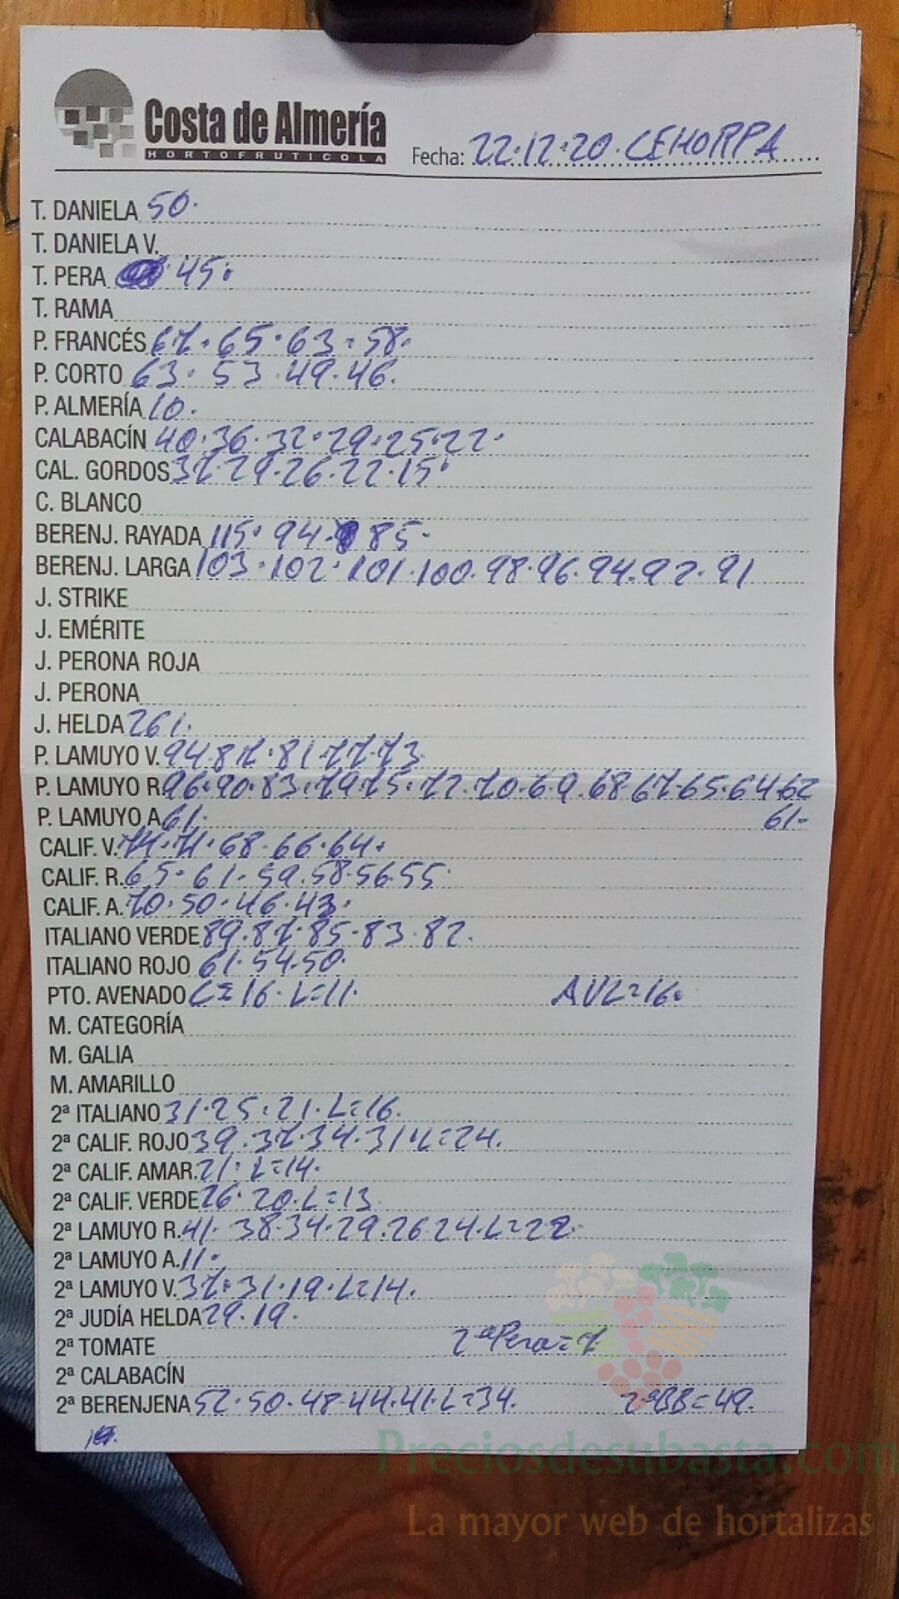 Costa de Almería
HORTOFRUTICOLA
Fecha: 22·12·20·CEHORPA
T. DANIELA 50·
T. DANIELA V.
T. PERA 45·
T. RAMA
P. FRANCÉS 67·65·63·58·
P. CORTO 63·53·49·46.
P. ALMERÍA 10·
CALABACÍN 40·36·32·29·25·22·
CAL. GORDOS 37·29·26·22·15·
C. BLANCO
BERENJ. RAYADA 115·94·85·
BERENJ. LARGA 103·102·101·100·98·96·94·92·91
J. STRIKE
J. EMÉRITE
J. PERONA ROJA
J. PERONA
J. HELDA 261·
P. LAMUYO V. 94·87·81·77·73
P. LAMUYO R 96·90·83·79·75·72·70·69·68·67·65·64·62
61·
P. LAMUYO A 61·
CALIF. V. 74·71·68·66·64·
CALIF. R. 65·61·59·58·56·55·
CALIF. A. 70·50·46·43·
ITALIANO VERDE 89·87·85·83·82·
ITALIANO ROJO 61·54·50·
PTO. AVENADO C=16·L=11· AVL=16·
M. CATEGORÍA
M. GALIA
M. AMARILLO
2ª ITALIANO 31·25·21·L=16.
2ª CALIF. ROJO 39·37·34·31·L=24.
2ª CALIF. AMAR. 21·L=14·
2ª CALIF. VERDE 26·20·L=13
2ª LAMUYO R. 41·38·34·29·26·24·L=22·
2ª LAMUYO A. 11·
2ª LAMUYO V. 37·31·19·L=14·
2ª JUDÍA HELDA 29·19·
2ª TOMATE 2ªPera=7
2ª CALABACÍN
2ª BERENJENA 52·50·48·44·41·L=34. 2ªBB=49.
Preciosdesubasta.com
La mayor web de hortalizas